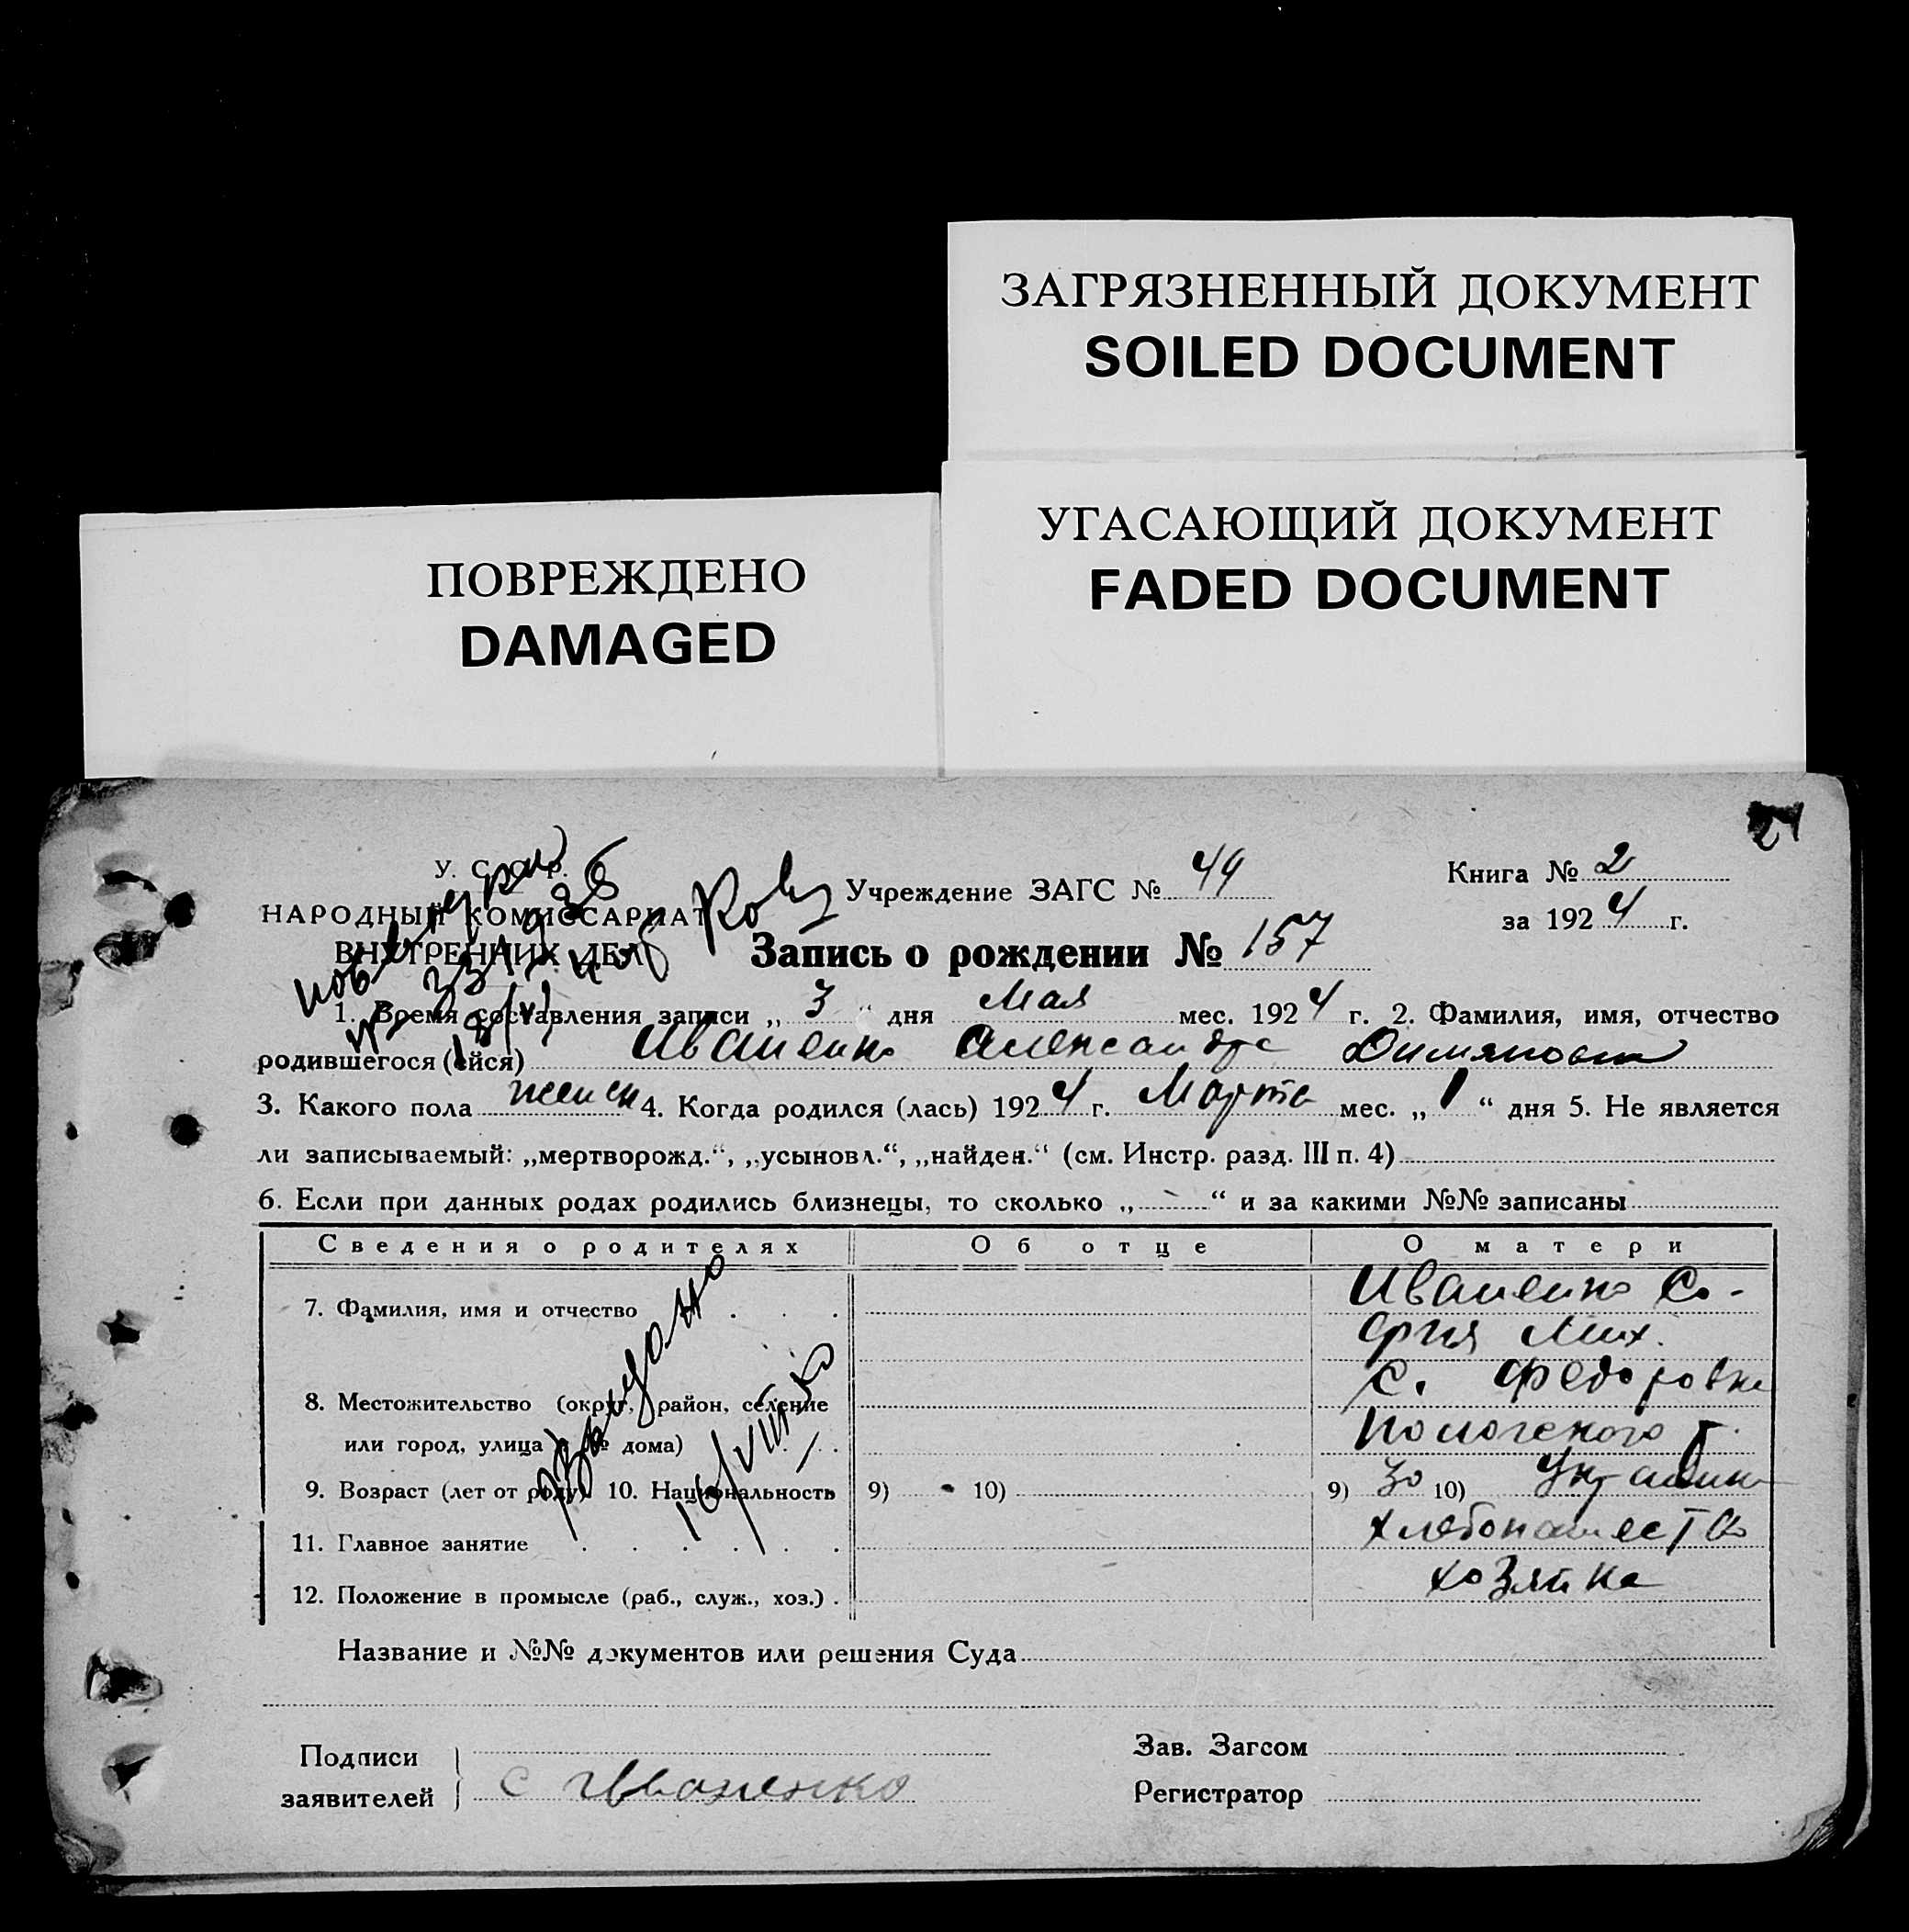 ЗАГРЯЗНЕННЫЙ ДОКУМЕНТ
SOILED DOCUMENT
УГАСАЮЩИЙ ДОКУМЕНТ
FADED DOCUMENT
ПОВРЕЖДЕНО
DAMAGED
У. С. С. Р.
НАРОДНЫЙ КОМИССАРИАТ
ВНУТРЕННИХ ДЕЛ
Учреждение ЗАГС № 44
Книга № 2
за 1924 г.
Запись о рождении № 157
1. Время составления записи „ 3 “ дня Мая мес. 1924 г. 2. Фамилия, имя, отчество
родившегося (ейся) Иваненко Александра
3. Какого пола женск 4. Когда родился (лась) 1924 г. Марта мес. „ 1 “ дня 5. Не является
ли записываемый: „мертворожд.“, „усыновл.“, „найден.“ (см. Инстр. разд. III п. 4)
6. Если при данных родах родились близнецы, то сколько „ - “ и за какими №№ записаны
Сведения о родителях Об отце О матери
7. Фамилия, имя и отчество Иваненко Со-
фия Мих.
8. Местожительство (округ, район, селение с. Федоровка
или город, улица и № дома) Пологского р.
9. Возраст (лет от роду) 10. Национальность 9) 10) 9) 30 10) Украинка
11. Главное занятие хлебопашество
12. Положение в промысле (раб., служ., хоз.) хозяйка
Выдано
16/VIII
Название и №№ документов или решения Суда
Подписи
заявителей С Иваненко
Зав. Загсом
Регистратор